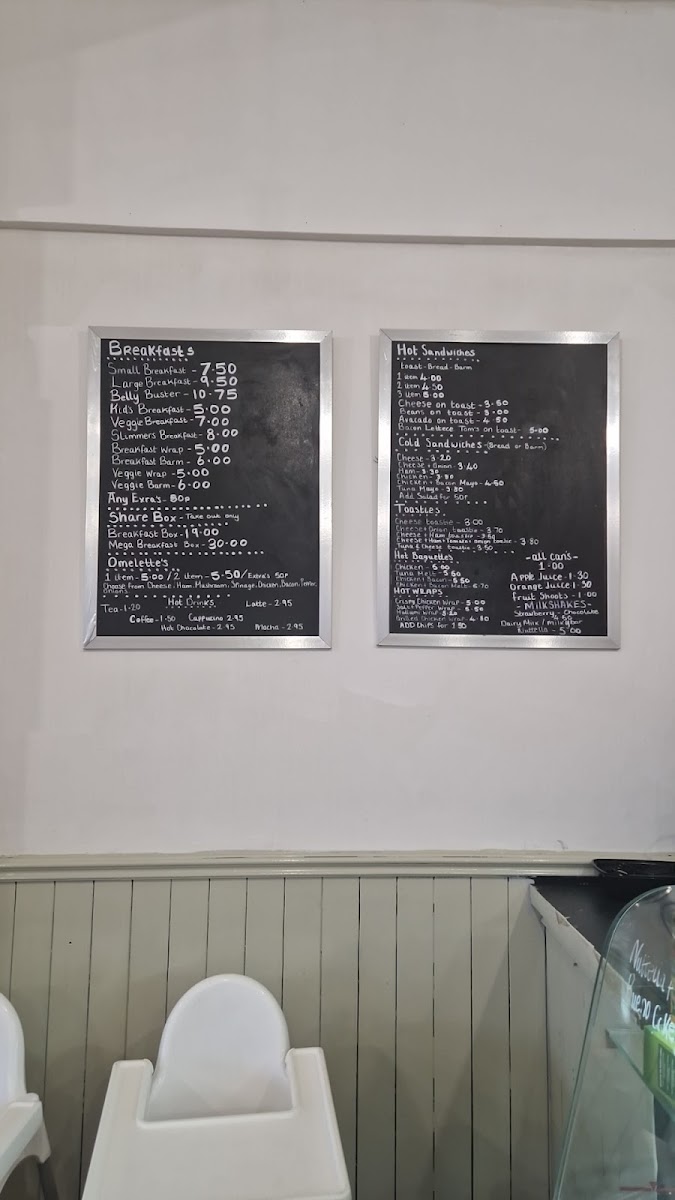 Breakfasts
Small Breakfast - 7.50
Large Breakfast - 9.50
Belly Buster - 10.75
Kids Breakfast - 5.00
Veggie Breakfast - 7.00
Slimmers Breakfast - 8.00
Breakfast Wrap - 5.00
Breakfast Barm - 6.00
Veggie Wrap - 5.00
Veggie Barm - 6.00
Any Exra's - 80p
Share Box - Take out only
Breakfast Box - 19.00
Mega Breakfast Box - 30.00
Omelette's
1 item - 5.00 / 2 item - 5.50 / Extra's 50p
Choose from Cheese, Ham, Mushroom, Chicken, Bacon,
Onions.
Hot Drinks
Tea - 1.20
Latte - 2.95
Coffee - 1.50 Cappucino 2.95
Hot Chocolate - 2.95 Mocha - 2.95
Hot Sandwiches
toast - Bread - Barm
1 item 4.00
2 item 4.50
3 item 5.00
Cheese on toast - 3.50
Beans on toast - 3.00
Avacado on toast - 4.50
Bacon Lettece Tom's on toast - 5.00
Cold Sandwiches - (Bread or Barm)
Cheese - 3.20
Cheese + Onion - 3.40
Ham - 3.30
Chicken - 3.80
Chicken + Bacon Mayo - 4.50
Tuna Mayo - 3.80
Add Salad for 50p
Toasties
Cheese toastie - 3.00
Cheese + Onion toastie - 3.70
Cheese + Ham toastie -
Cheese + Ham + Tomato + onion toastie - 3.80
Tuna + Cheese toastie - 3.50
Hot Baguettes
Chicken - 5.00
Tuna Melt - 5.50
Chicken + Bacon - 6.50
Chicken + Bacon Melt - 6.70
HOT WRAPS
Crispy Chicken Wrap - 5.00
Salt + Pepper Wrap -
Halloumi Wrap -
Grilled Chicken Wrap - 4.80
ADD Chips for 1.50
- all Can's -
1.00
Apple Juice - 1.30
Orange Juice 1.50
Fruit Shoots - 1.00
- MILKSHAKES -
Strawberry - Chocolate
4.50
Dairy Milk / Milkybar
Nuttella - 5.00